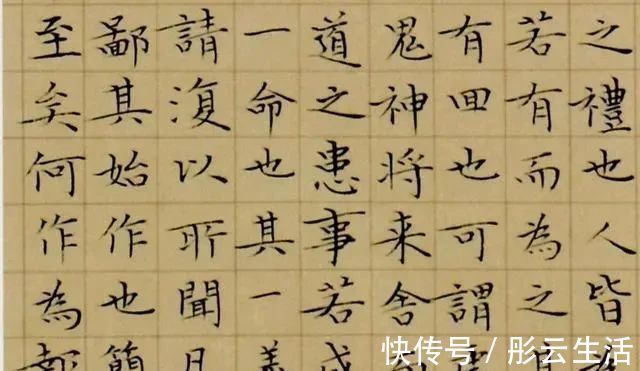 之禮也人皆
若有而為之
有回也可謂
鬼神将来舍
道之患事若
一命也其一義
請復以所聞
鄙其始作也簡
至矣何作為
快传号 / 彤云生活